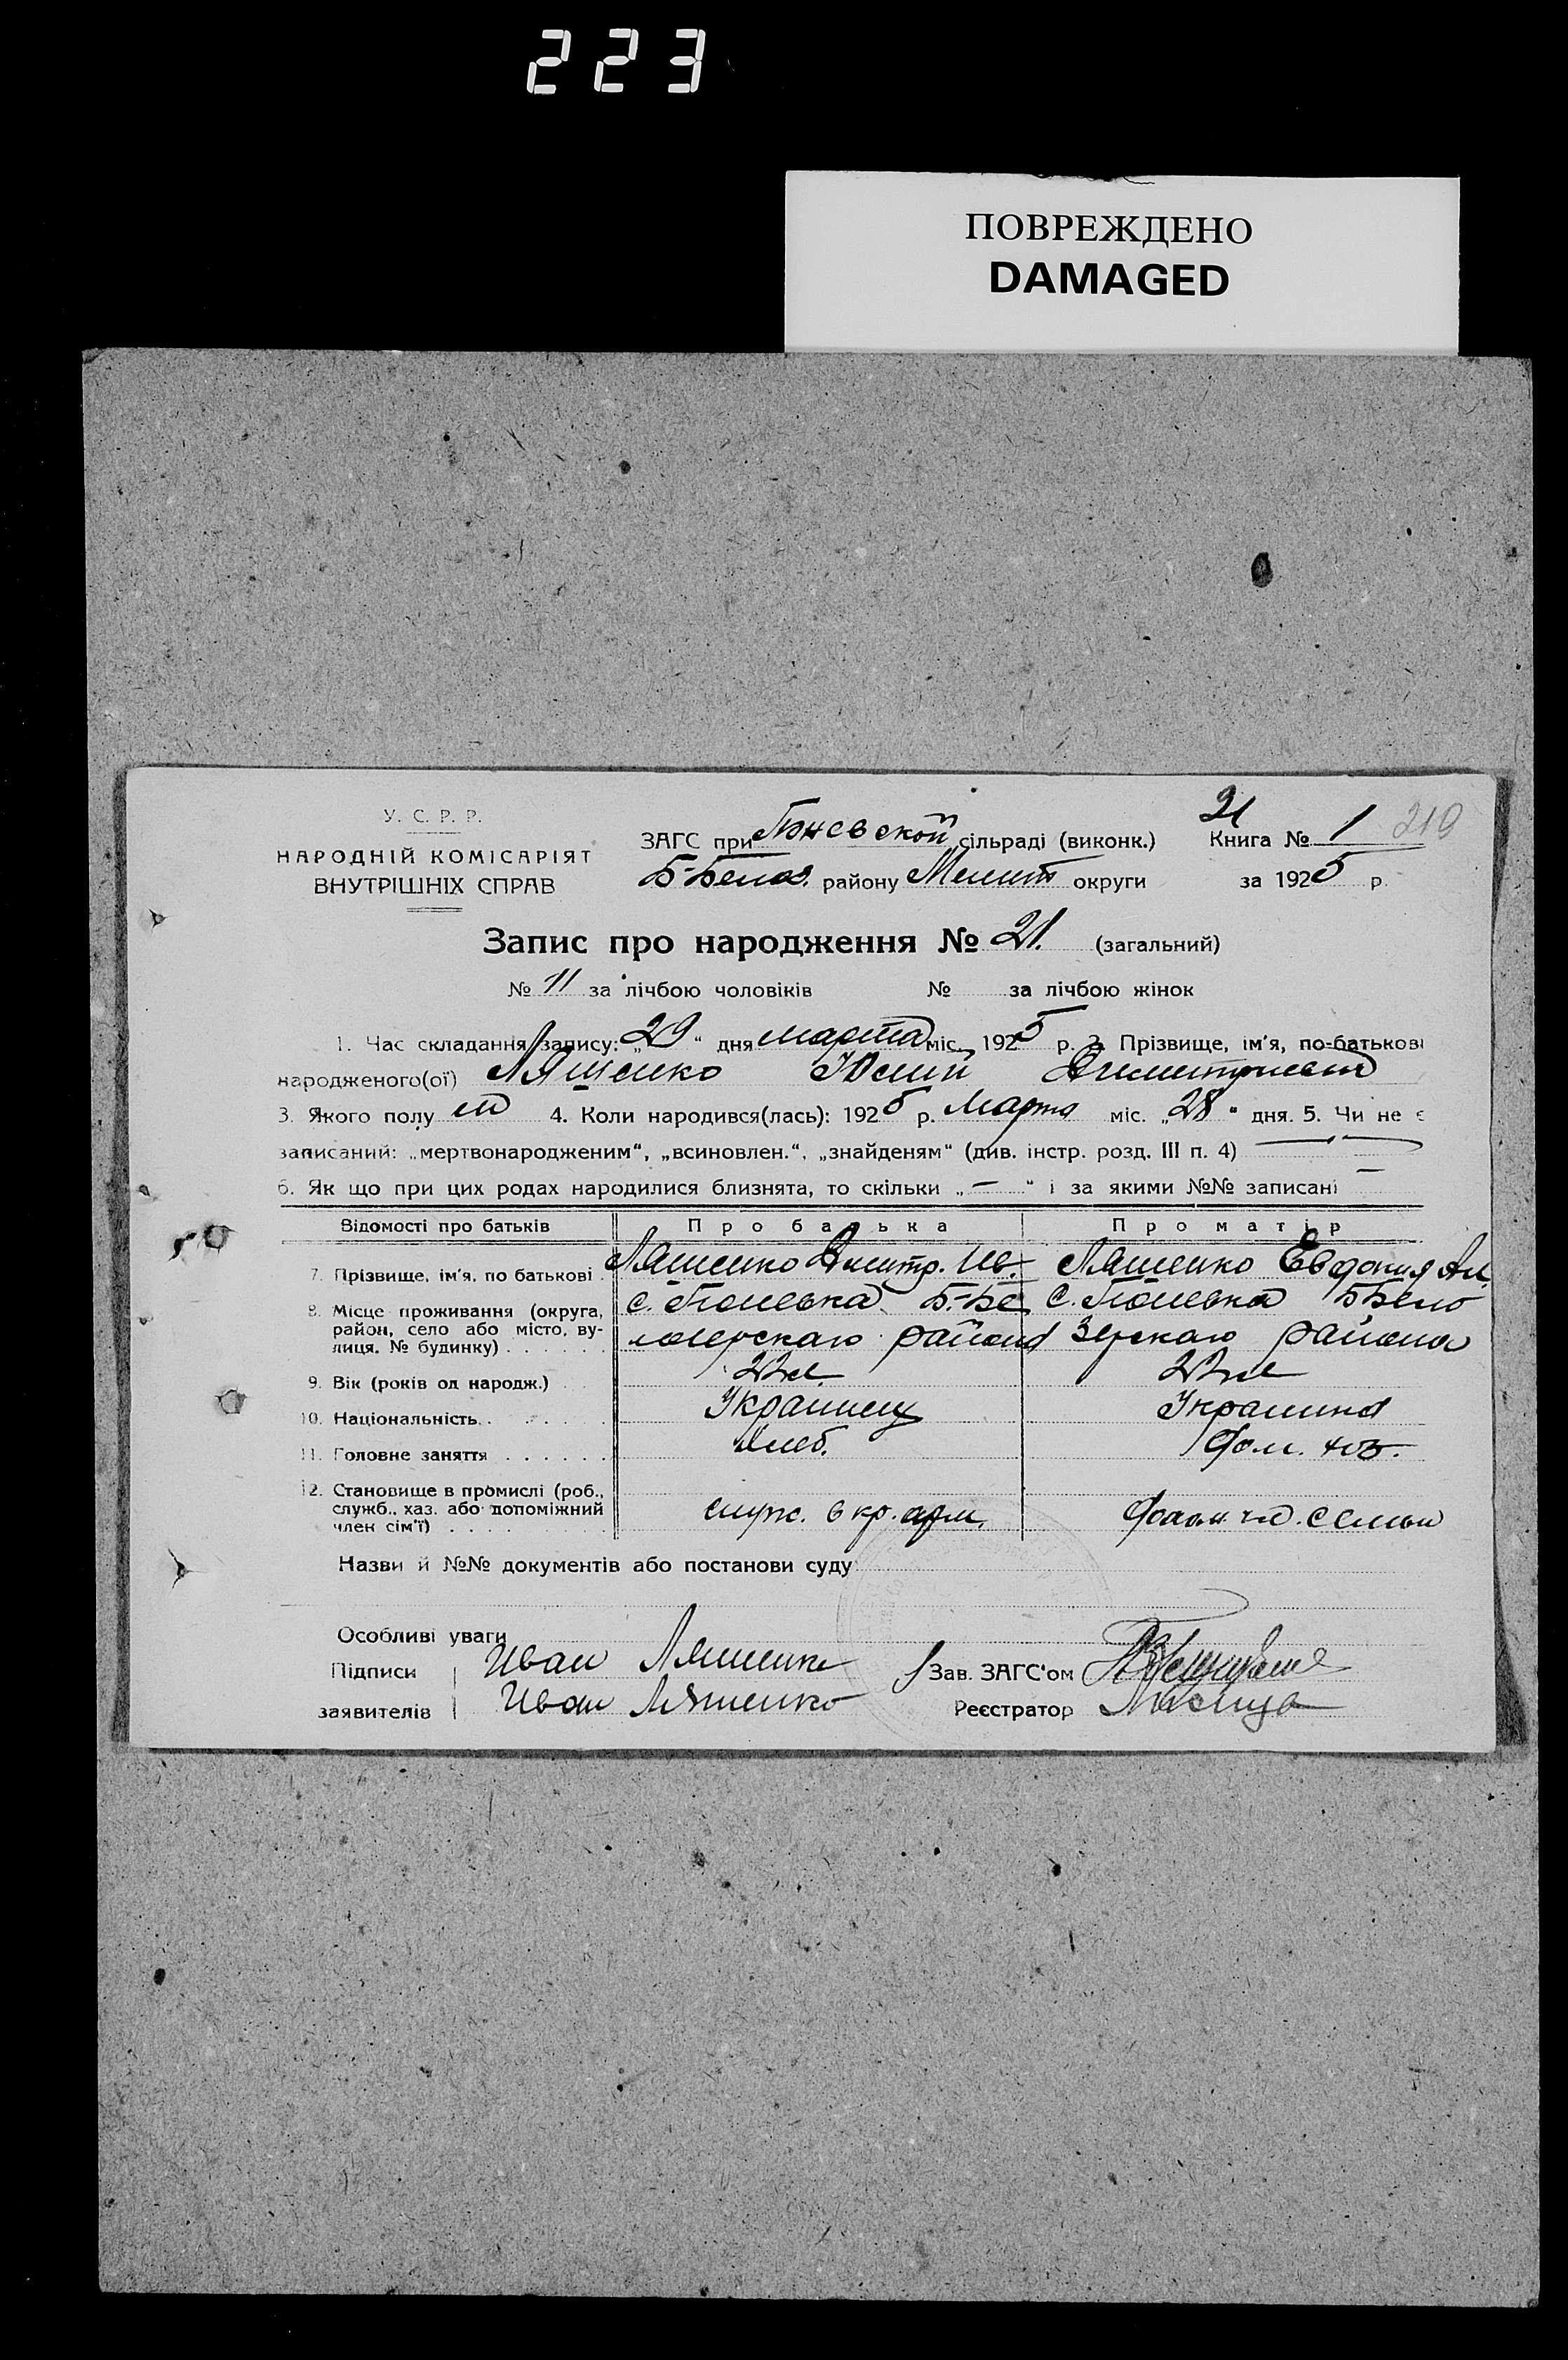 223
ПОВРЕЖДЕНО
DAMAGED
У. С. Р. Р.
НАРОДНІЙ КОМІСАРІЯТ
ВНУТРІШНІХ СПРАВ
21
ЗАГС при сільраді (виконк.) Книга № 1 219
Б-Белоз. району Мелит округи за 1925 р.
Запис про народження № 21. (загальний)
№ 11 за лічбою чоловіків № за лічбою жінок
1. Час складання запису: „29“ дня марта міс. 1925 р. 2. Прізвище, ім'я, по-батькові
народженого(ої) Ляшенко Юлий Димитриевич
3. Якого полу м 4. Коли народився(лась): 1925 р. Марта міс. „28“ дня. 5. Чи не є
записаний: „мертвонародженим“, „всиновлен.“, „знайденям“ (див. інстр. розд. III п. 4) —
6. Як що при цих родах народилися близнята, то скільки „—“ і за якими №№ записані —
Відомості про батьків Про батька Про матір
7. Прізвище, ім'я, по батькові Ляшенко Димитр. Ив. Ляшенко Евдокия
8. Місце проживання (округа, район, село або місто, вулиця. № будинку) с. Б.-Бе с. ББело
лозерскаго района зерскаго района
9. Вік (років од народж.) 22 22
10. Національність Украинец Украинка
11. Головне заняття Хлеб. Дом. хоз.
12. Становище в промислі (роб., служб., хаз. або допоміжний член сім'ї) служ. в кр. арм. семьи
Назви й №№ документів або постанови суду
Особливі уваги
Підписи Иван Ляшенко Зав. ЗАГС'ом
заявителів Иван Ляшенко Реєстратор